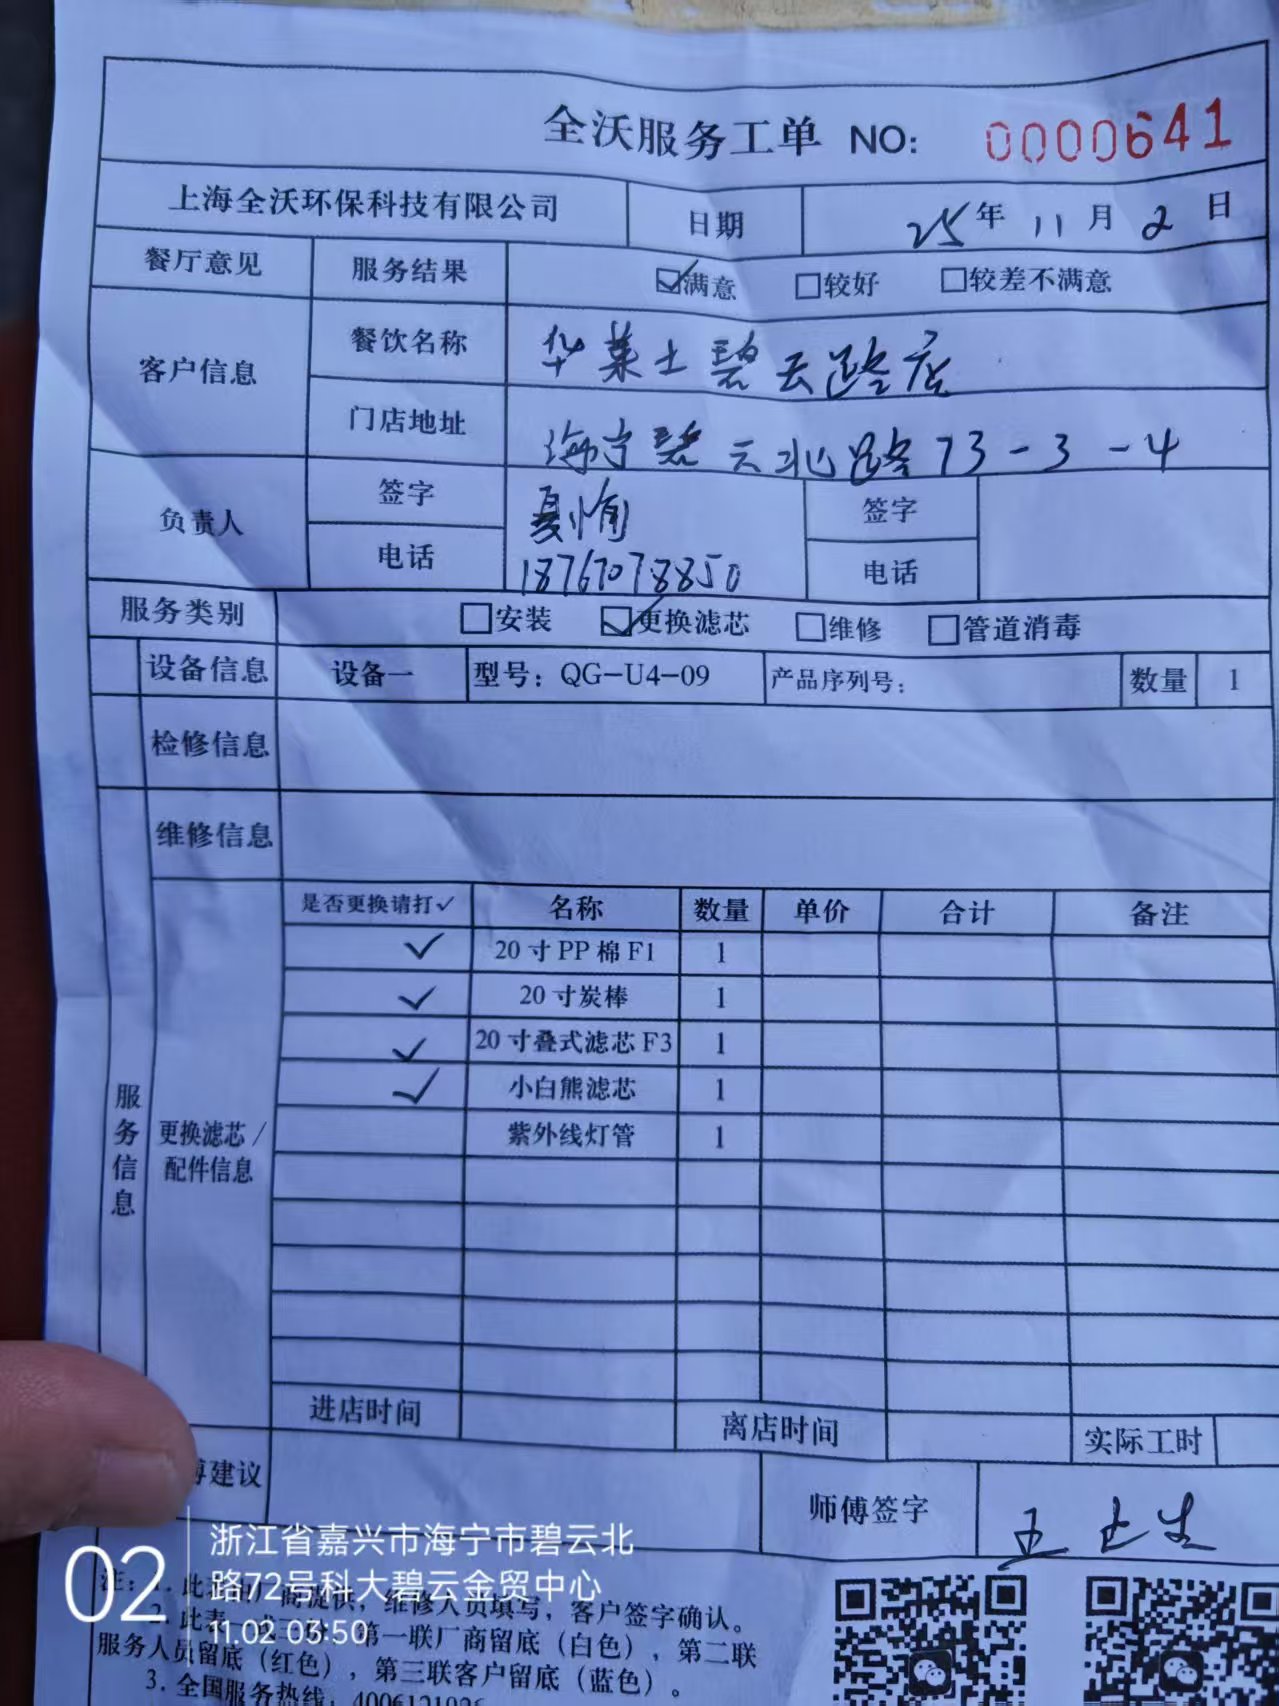 全沃服务工单 NO: 0000641
上海全沃环保科技有限公司 日期 25年11月2日
餐厅意见 服务结果 ☑满意 □较好 □较差不满意
客户信息 餐饮名称 华莱士碧云路店
门店地址 海宁碧云北路73-3-4
负责人 签字 夏 签字
电话 18767078850 电话
服务类别 □安装 ☑更换滤芯 □维修 □管道消毒
设备信息 设备一 型号：QG-U4-09 产品序列号： 数量 1
检修信息
维修信息
服务信息
更换滤芯/配件信息
是否更换请打✓ 名称 数量 单价 合计 备注
✓ 20寸PP棉F1 1
✓ 20寸炭棒 1
✓ 20寸叠式滤芯F3 1
✓ 小白熊滤芯 1
紫外线灯管 1
进店时间 离店时间 实际工时
建议 师傅签字
注：1. 此 商提供，维修人员填写，客户签字确认。
2. 此表 第一联厂商留底（白色），第二联
服务人员留底（红色），第三联客户留底（蓝色）。
3. 全国服务热线：
02
浙江省嘉兴市海宁市碧云北
路72号科大碧云金贸中心
11.02 03:50